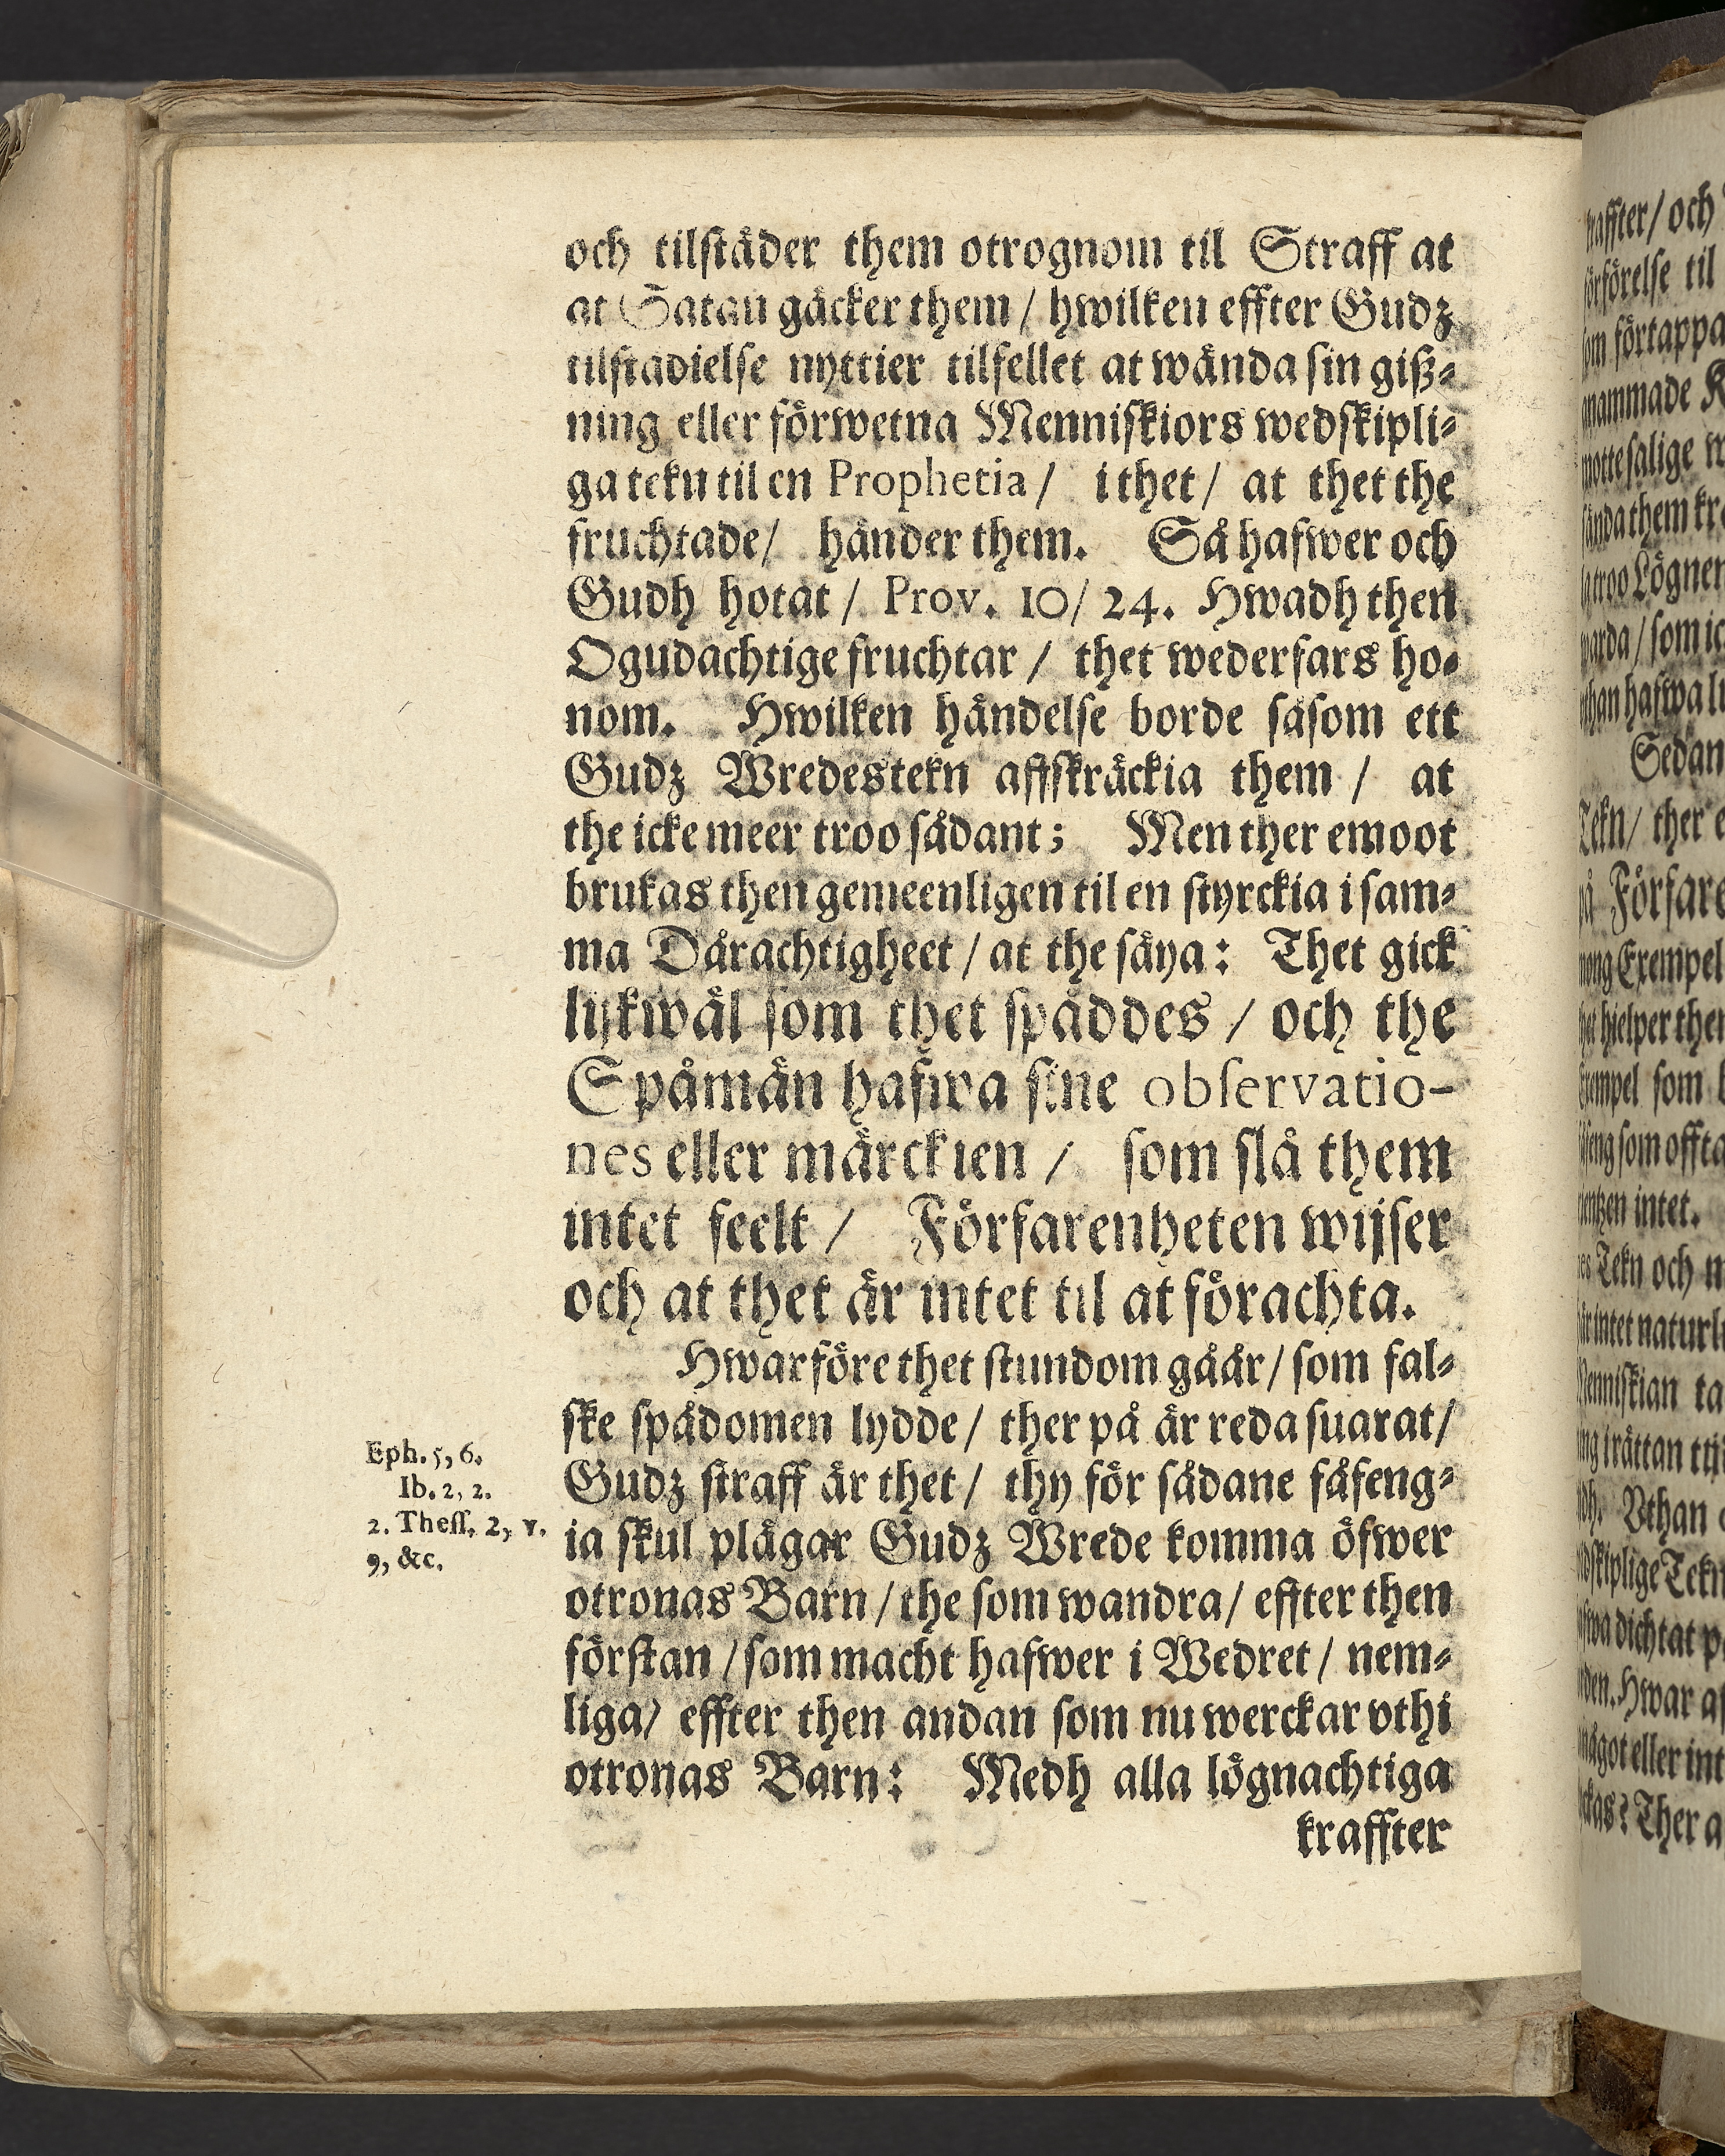 och tilſtåder them otrognom til Straff at
at Satan gäcker them / hwilken effter Gudz
tilſtadielſe nyttier tilfellet at wända ſin giß⸗
ning eller förwetna Menniſkiors wedſkipli⸗
ga tekn til en Prophetia / i thet / at thet the
fruchtade / händer them. Så hafwer och
Gudh hotat / Prov. 10 / 24. Hwadh then
Ogudachtige fruchtar / thet wederfars ho⸗
nom. Hwilken händelſe borde ſåſom ett
Gudz Wredestekn affſkräckia them / at
the icke meer troo ſådant; Men ther emoot
brukas then gemeenligen til en ſtyrckia i ſam⸗
ma Dårachtigheet / at the ſäya: Thet gick
lijkwäl ſom thet ſpåddes / och the
Spåmän hafwa ſine obſervatio-
nes eller märckien / ſom ſlå them
intet feelt / Förfarenheten wijſer
och at thet är intet til at förachta.
Hwarföre thet ſtundom gåår / ſom fal⸗
ſke ſpådomen lydde / ther på är reda ſuarat /
Gudz ſtraff är thet / thy för ſådane fåfeng⸗
ia ſkul plägar Gudz Wrede komma öfwer
otronas Barn / the ſom wandra / effter then
förſtan / ſom macht hafwer i Wedret / nem⸗
liga / effter then andan ſom nu werckar vthi
otronas Barn: Medh alla lögnachtiga
kraffter
Eph. 5, 6.
Ib. 2, 2.
2. Theſſ. 2, v.
9, &c.
raffter / och
förelſe til
förtappa
nammade
ſalige
Lögner
Sedan
Tekn / ther
på Förfare
Exempel
hielper
ſom
ſom offta
intet.
Tekn och
intet naturl
Menniſkian ta
Vthan
dichtat
Hwar
något eller
Ther